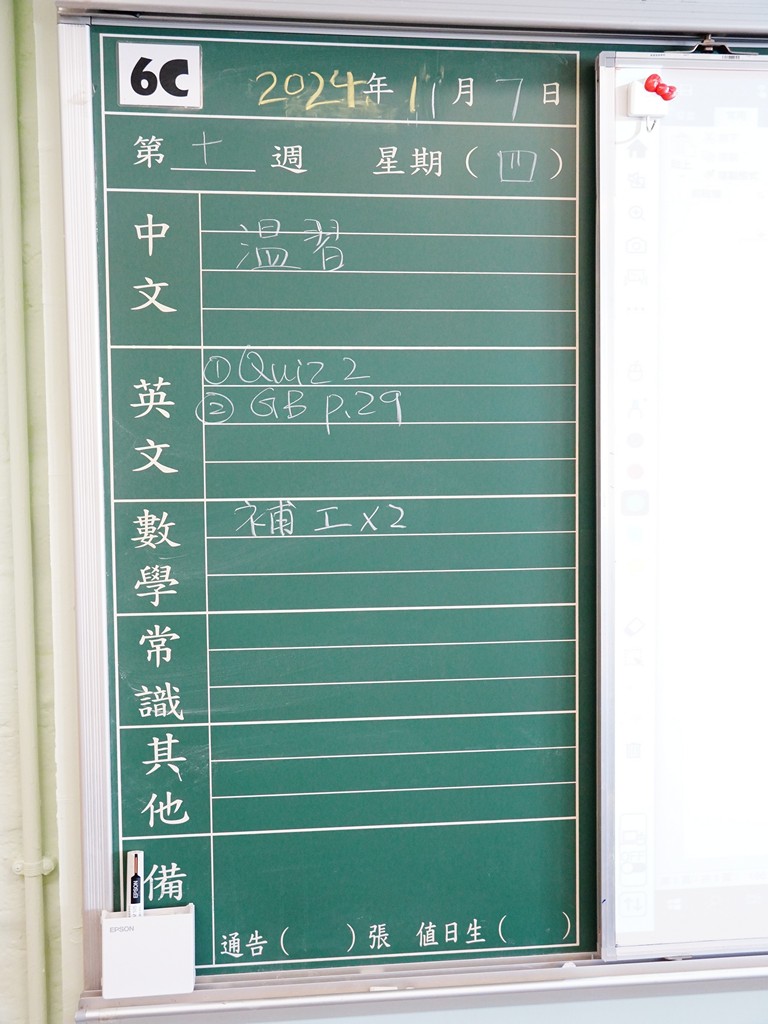 6C
2024年11月7日
第十週 星期(四)
中文
温習
英文
①Quiz 2
② GB p.29
數學
補工x2
常識
其他
備
通告( )張 值日生( )
EPSON